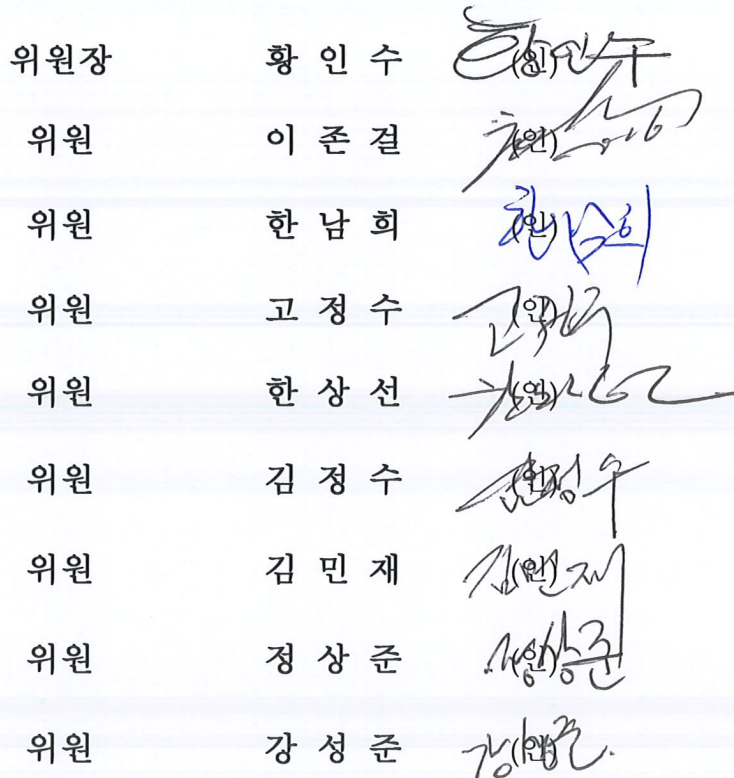 위원장 황 인 수 (인)
위원 이 존 걸 (인)
위원 한 남 희 (인) 한남희
위원 고 정 수 (인)
위원 한 상 선 (인)
위원 김 정 수 (인) 김정수
위원 김 민 재 (인) 김민재
위원 정 상 준 (인) 정상준
위원 강 성 준 (인)